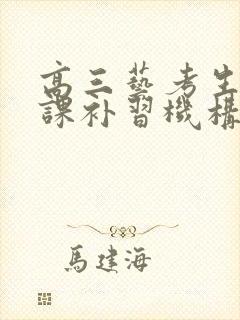 高三藝考生
課补習機構
馬建海